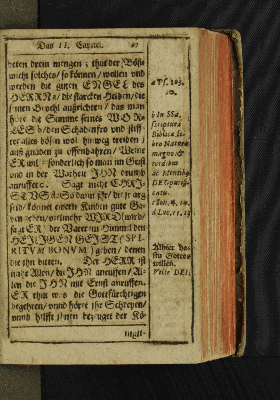 Das II. Capitel. 47
deren drein mengen; thut der Böse
nicht solches / so können / wollen und
werden die guten ENGEL des
HERRN a / die starcken Helden / die
seinen Befehl außrichten / das man
höre die Stimme seines WOR-
TES b / den Schadenfro und stiff-
ter alles bösen wol hinweg treiben;
auß gnaden zu offenbahren / Wens
ER wil = sonderlich so man im Geist
und in der Warheit JHN drumb
anruffet c. Sagt nicht CHRI-
STVS d: So dann jhr / die jr arg
seyt / könnet ewern Kindern gute Ga-
ben geben / vielmehr WIRD (würde
sagt ER) der Vater im Himmel den
HEILIGEN GEIST (SPI-
RITVM BONVM) geben / denen
die jhn bitten. Der HERR ist
nahe Allen / die JHN anruffen / Al-
len die JHN mit Ernst anruffen.
ER thut was die Gottsfürchtigen
begehren / unnd höret jhr Schreyen /
unnd hilfft jhnen
a Ps. 103.
20.
b In SSa.
scriptura
c Joh. 4. 24.
d Luc. 11. 13
Gottes
willen.
Velle DEI.